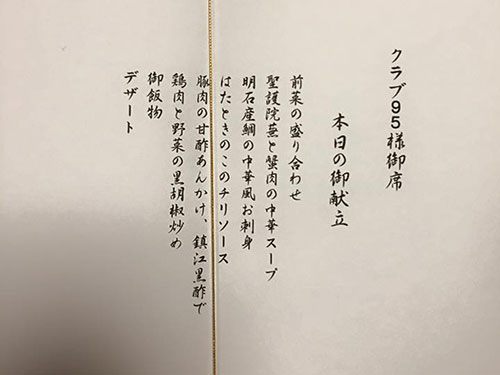 クラブ95様御席
本日の御献立
前菜の盛り合わせ
聖護院蕪と蟹肉の中華スープ
明石産鯛の中華風お刺身
はたときのこのチリソース
豚肉の甘酢あんかけ、鎮江黒酢で
鶏肉と野菜の黒胡椒炒め
御飯物
デザート